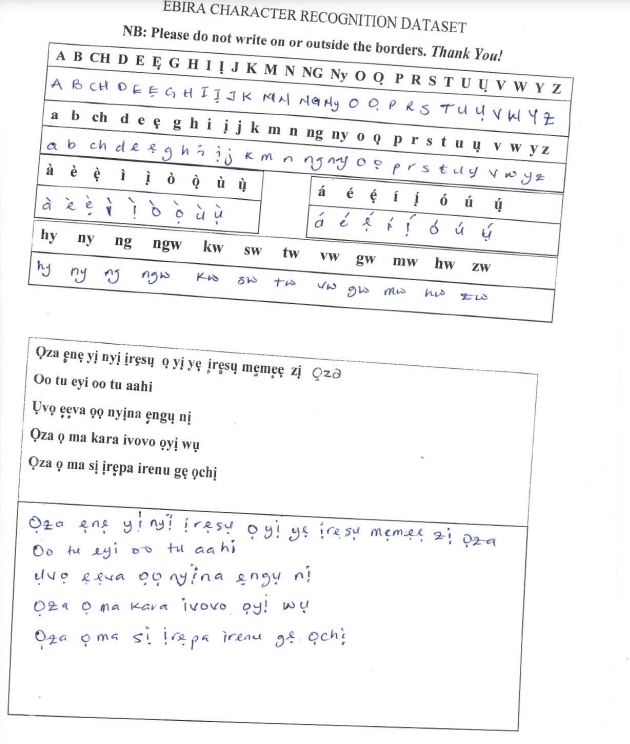 EBIRA CHARACTER RECOGNITION DATASET
NB: Please do not write on or outside the borders. Thank You!
A B CH D E Ẹ G H I Ị J K M N NG Ny O Ọ P R S T U Ụ V W Y Z
A B CH D E Ẹ G H I Ị J K M N NG Ny O Ọ P R S T U Ụ V W Y Z
a b ch d e ẹ g h i ị j k m n ng ny o ọ p r s t u ụ v w y z
a b ch d e ẹ g h i ị j k m n ng ny o ọ p r s t u y v w y z
à è ẹ̀ ì ị̀ ò ọ̀ ù ụ̀
à è ẹ̀ ì ị̀ ò ọ̀ ù ụ̀
á é ẹ́ í ị́ ó ú ụ́
á é ẹ́ í ị́ ó ú ụ́
hy ny ng ngw kw sw tw vw gw mw hw zw
hy ny ng ngw kw sw tw vw gw mw hw zw
Ọza ẹnẹ yị nyị ịrẹsụ ọ yị yẹ ịrẹsụ mẹmẹẹ zị Ọza
Oo tu eyi oo tu aahi
Ụvọ ẹẹva ọọ nyịna ẹngụ nị
Ọza ọ ma kara ivovo ọyị wụ
Ọza ọ ma sị ịrẹpa irenu gẹ ọchị
Ọza ẹnẹ yị nyị ịrẹsụ ọ yị yẹ ịrẹsụ mẹmẹẹ zị Ọza
Oo tu eyi oo tu aahi
Ụvọ ẹẹva ọọ nyịna ẹngụ nị
Ọza ọ ma kara ivovo ọyị wụ
Ọza ọ ma sị ịrẹpa irenu gẹ ọchị